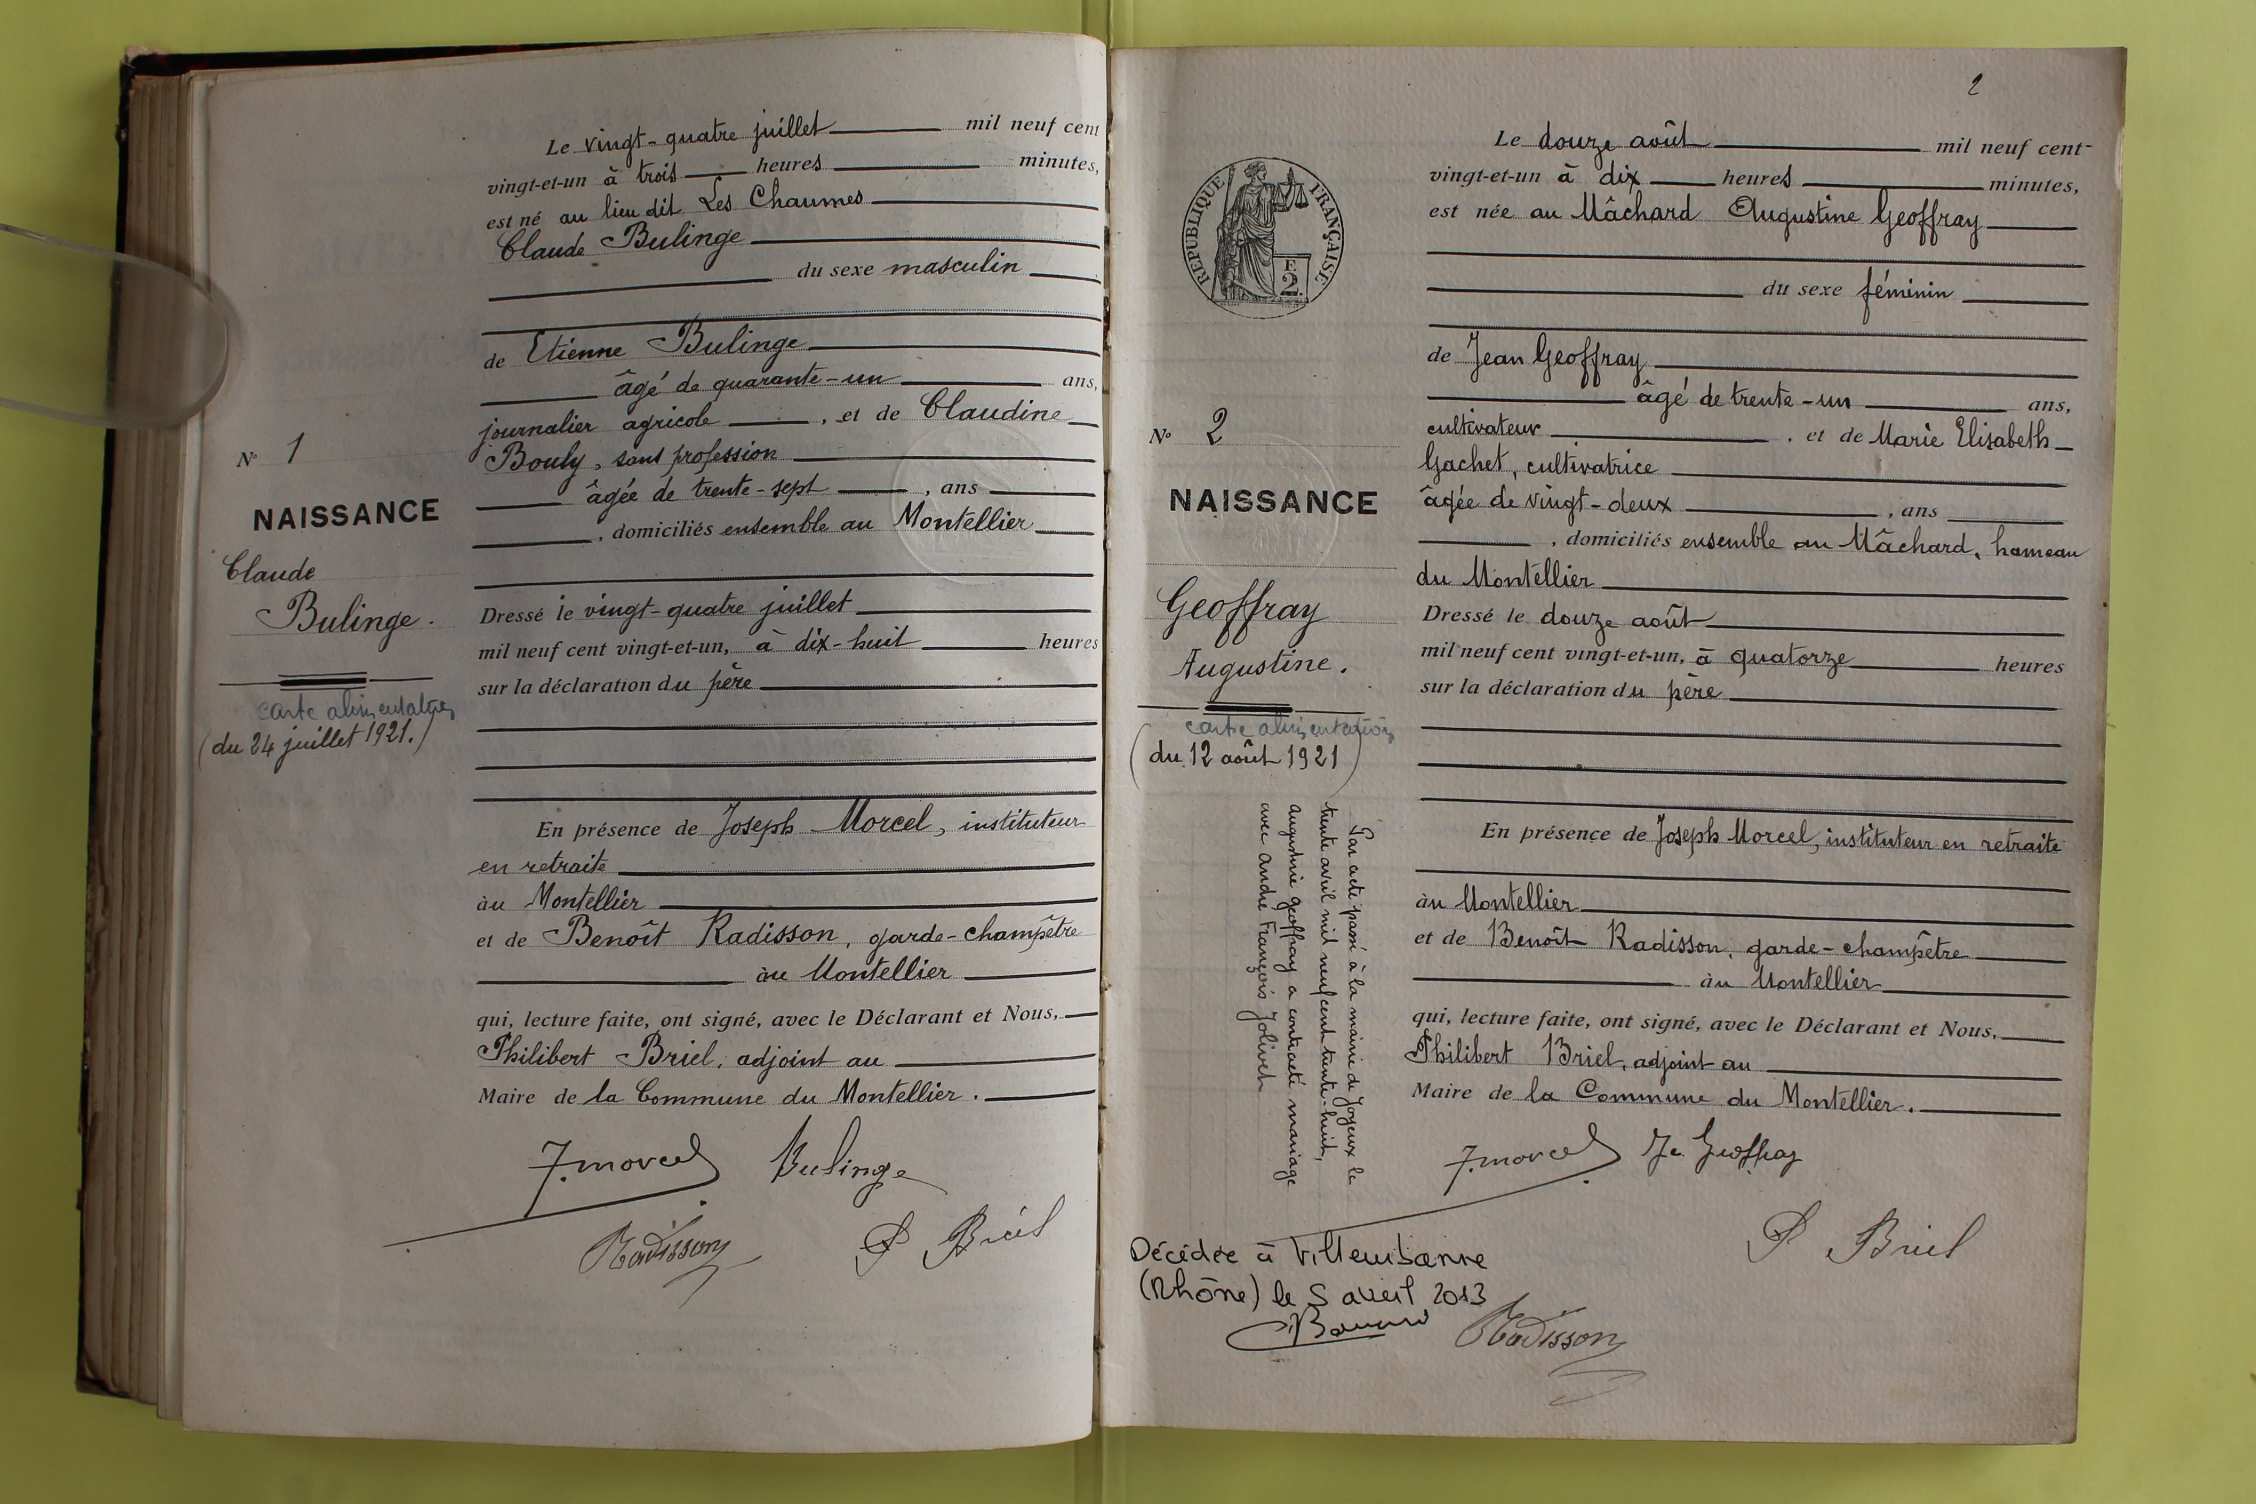 Le vingt-quatre juillet mil neuf cent
vingt-et-un à trois heures minutes,
est né au lieu dit Les Chaumes
Claude Bulinge
du sexe masculin
de Etienne Bulinge
âgé de quarante-un ans,
journalier agricole , et de Claudine
Bouly, sans profession
âgée de trente-sept , ans
, domiciliés ensemble au Montellier
Dressé le vingt-quatre juillet
mil neuf cent vingt-et-un, à dix-huit heures
sur la déclaration du père
En présence de Joseph Morcel, instituteur
en retraite
au Montellier
et de Benoît Radisson, garde-champêtre
au Montellier
qui, lecture faite, ont signé, avec le Déclarant et Nous,
Philibert Briel, adjoint au
Maire de la Commune du Montellier.
J. Morcel Bulinge
Radisson P Briel
N° 1
NAISSANCE
Claude
Bulinge.
carte alimentation
(du 24 juillet 1921.)
2
Le douze août mil neuf cent-
vingt-et-un à dix heures minutes,
est née au Mâchard Augustine Geoffray
du sexe féminin
de Jean Geoffray
âgé de trente-un ans,
cultivateur , et de Marie Elisabeth
Gachet, cultivatrice
âgée de vingt-deux , ans
, domiciliés ensemble au Mâchard, hameau
du Montellier
Dressé le douze août
mil neuf cent vingt-et-un, à quatorze heures
sur la déclaration du père
En présence de Joseph Morcel, instituteur en retraite
au Montellier
et de Benoît Radisson, garde-champêtre
au Montellier
qui, lecture faite, ont signé, avec le Déclarant et Nous,
Philibert Briel, adjoint au
Maire de la Commune du Montellier.
J. Morcel Je Geoffray
P Briel
Radisson
RÉPUBLIQUE FRANÇAISE
E
2.
N° 2
NAISSANCE
Geoffray
Augustine.
carte alimentation
(du 12 août 1921)
Par acte passé à la mairie de Joyeux le
trente avril mil neuf cent trente-huit,
augustine geoffray a contracté mariage
avec andré François Jolivet
Décédée à Villeurbanne
(Rhône) le 5 avril 2013